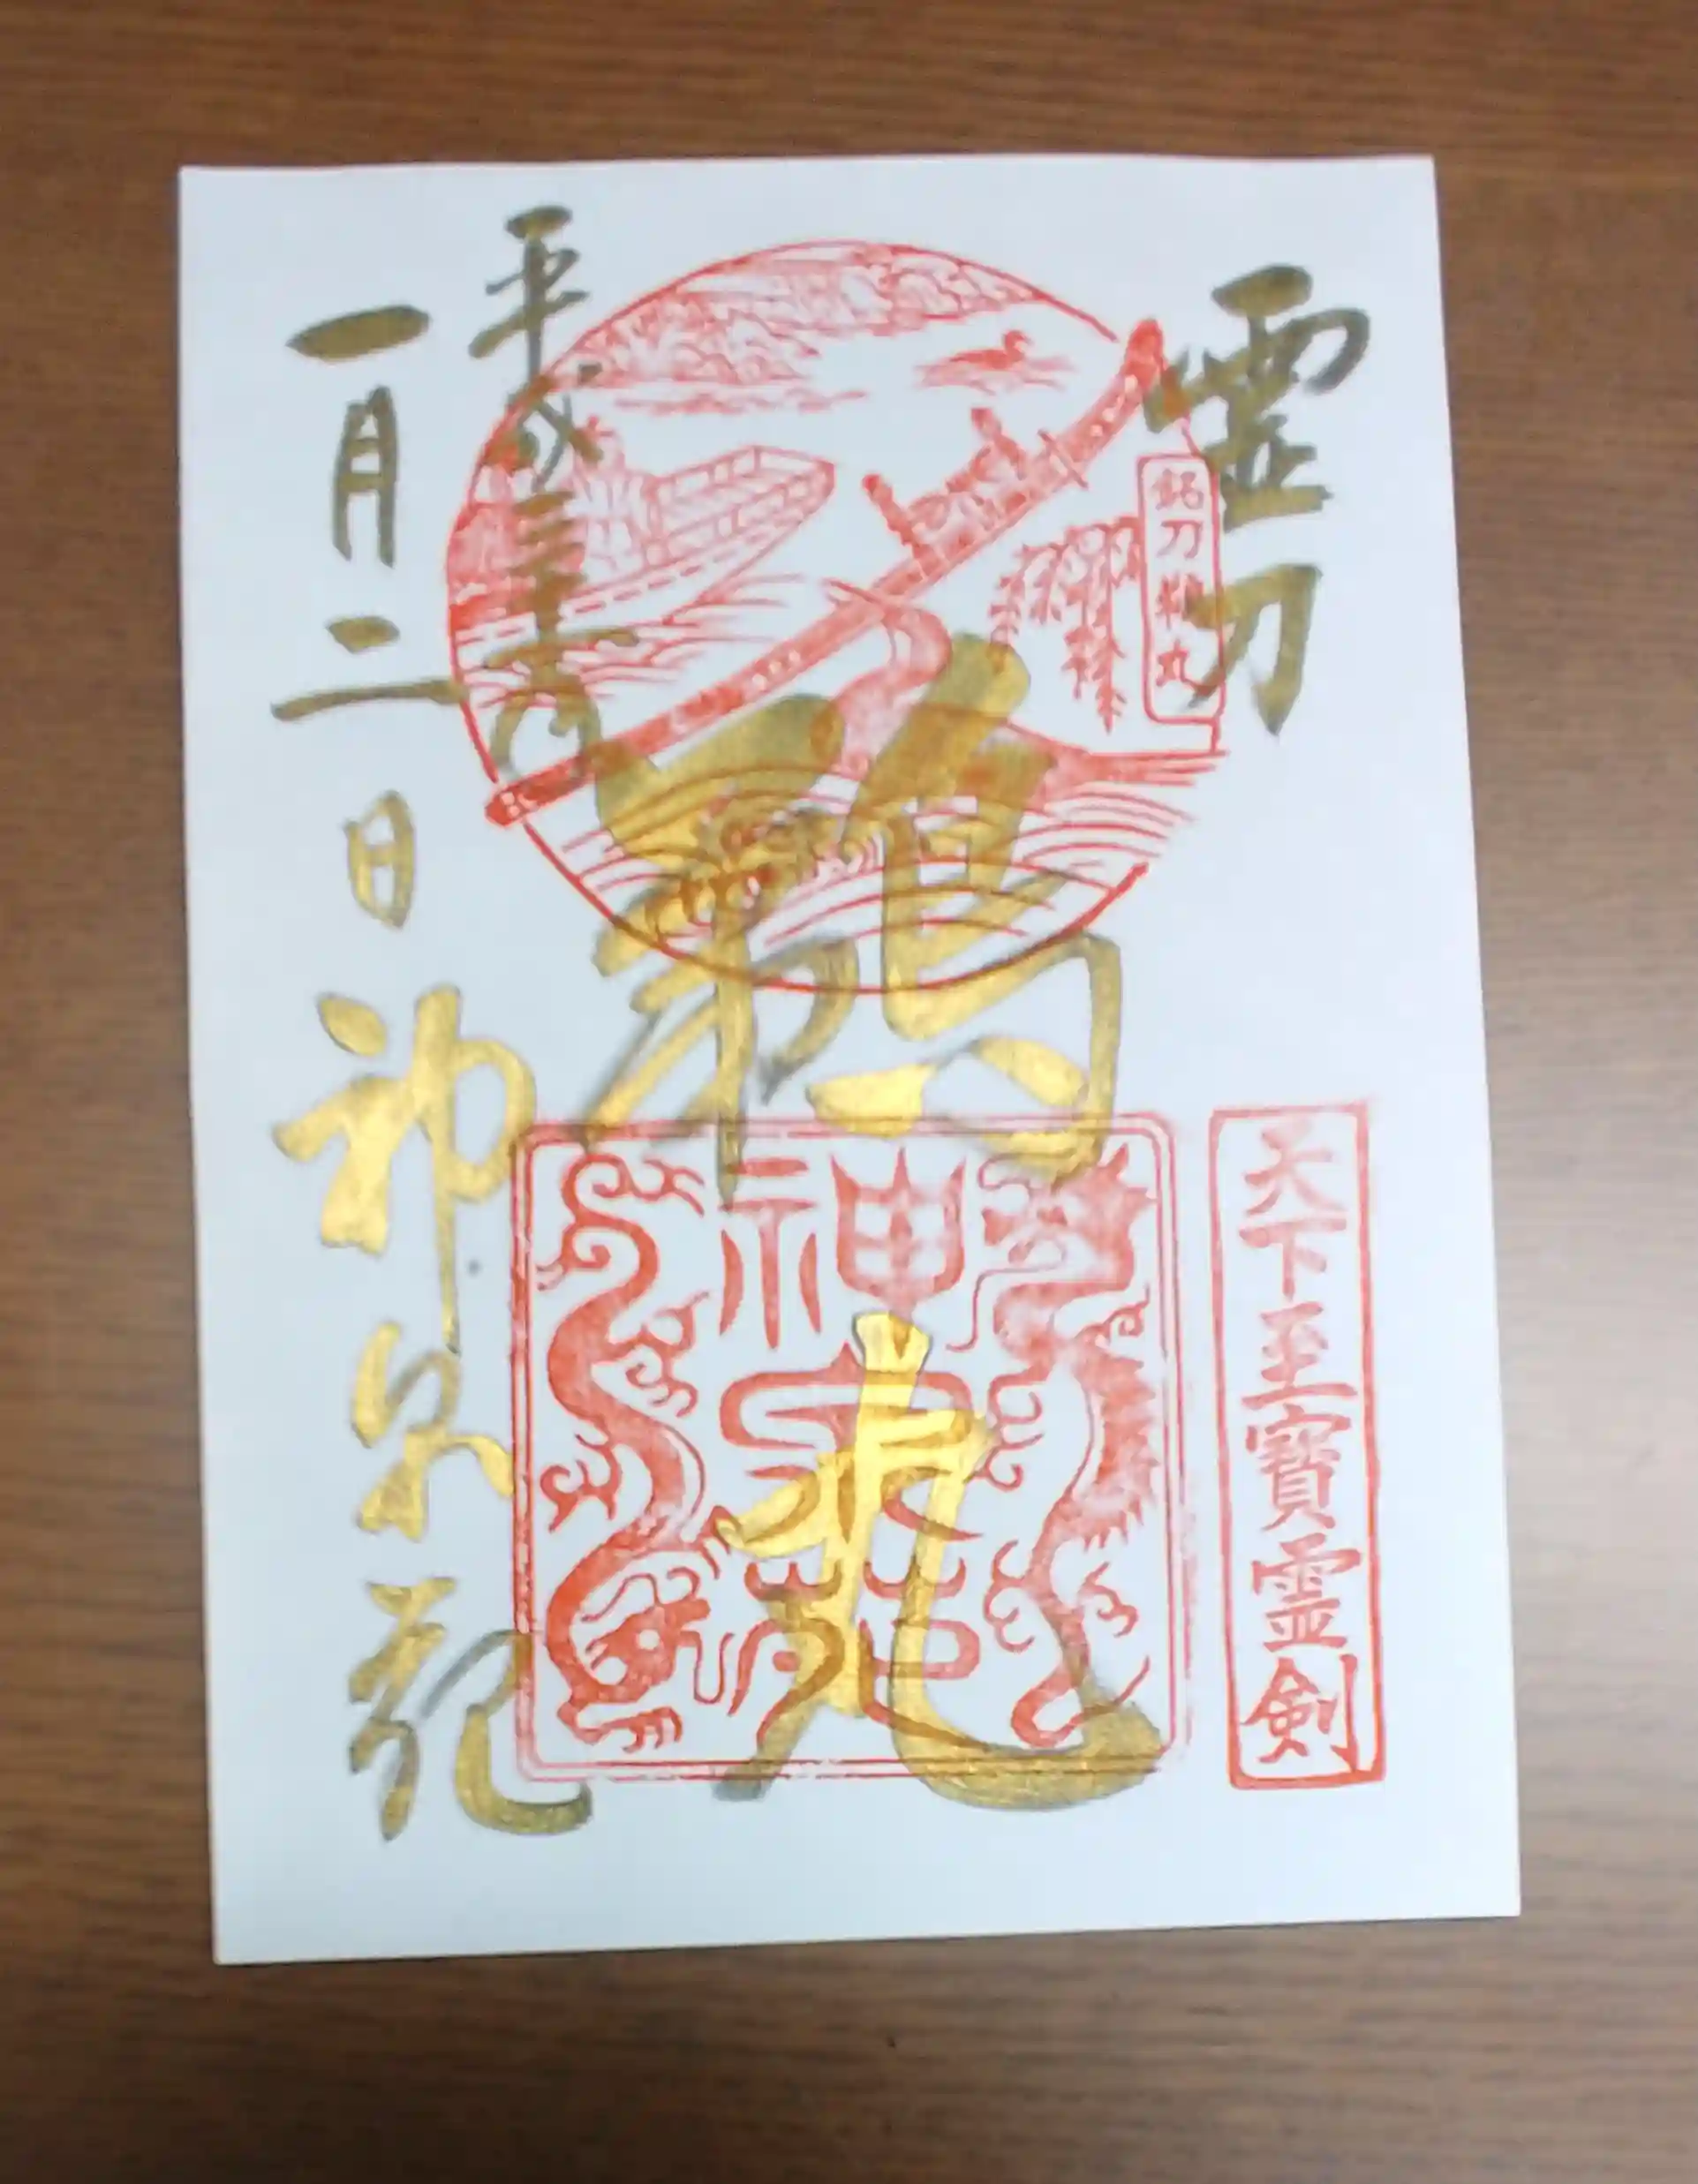 霊刀
銘刀鵜丸
天下至寶霊剣
鵜丸
神泉苑
平成三十一年
一月二日
神泉苑